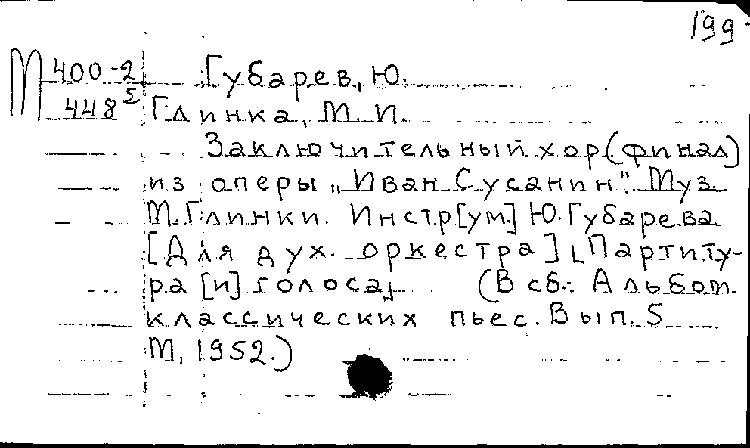 199
М 400-2 Губарев, Ю.
448 Σ Глинка, М. И.
Заключительный хор (финал)
из оперы „Иван Сусанин". Муз.
М. Глинки. Инстр[ум.] Ю. Губарева
[Для дух. оркестра] [Партиту-
ра [и] голоса]. (В сб.: Альбом
классических пьес. Вып. 5
М., 1952.)